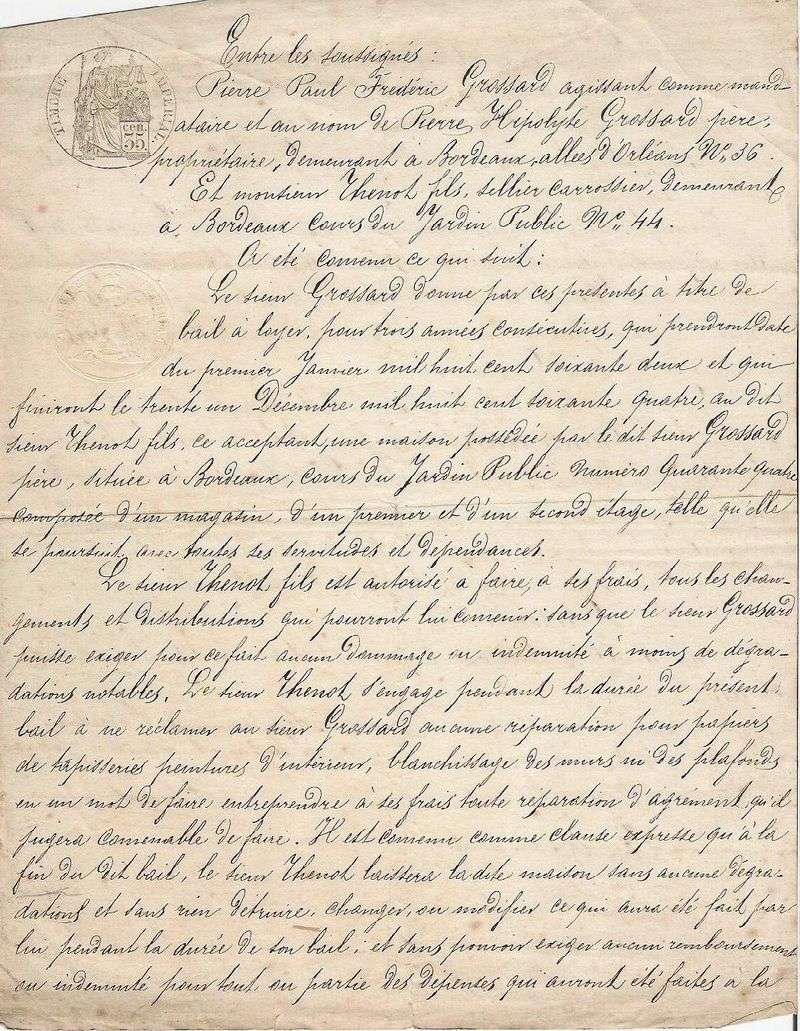 TIMBRE IMPERIAL
CEN. 35
Entre les soussignés :
Pierre Paul Frédéric Grossard agissant comme mand-
ataire et au nom de Pierre Hipolyte Grossard père,
propriétaire, demeurant à Bordeaux, allées d'Orléans No 36.
Et monsieur Thenot fils, sellier carrossier, demeurant
à Bordeaux cours du Jardin Public No 44.
A été convenu ce qui suit :
Le sieur Grossard donne par ces présentes à titre de
bail à loyer, pour trois années consécutives, qui prendront date
du premier Janvier mil huit cent soixante deux et qui
finiront le trente un Décembre mil huit cent soixante quatre, au dit
sieur Thenot fils, ce acceptant, une maison possédée par le dit sieur Grossard
père, située à Bordeaux, cours du Jardin Public numéro quarante quatre
composée d'un magasin, d'un premier et d'un second étage, telle qu'elle
se poursuit, avec toutes ses servitudes et dépendances.
Le sieur Thenot fils est autorisé à faire, à ses frais, tous les chan-
gements et distributions qui pourront lui convenir : sans que le sieur Grossard
puisse exiger pour ce fait aucun dommage ou indemnité à moins de dégra-
dations notables. Le sieur Thenot s'engage pendant la durée du présent
bail à ne réclamer au sieur Grossard aucune réparation pour papiers
de tapisseries peintures d'intérieur, blanchissage des murs ni des plafonds
en un mot de faire entreprendre à ses frais toute réparation d'agrément, qu'il
jugera convenable de faire. Il est convenu comme clause expresse qu'à la
fin du dit bail, le sieur Thenot laissera la dite maison sans aucune dégra-
dations et sans rien detruire, changer, ou modifier ce qui aura été fait par
lui pendant la durée de son bail ; et sans pouvoir exiger aucun remboursement
ou indemnité pour tout ou partie des dépenses qui auront été faites a la